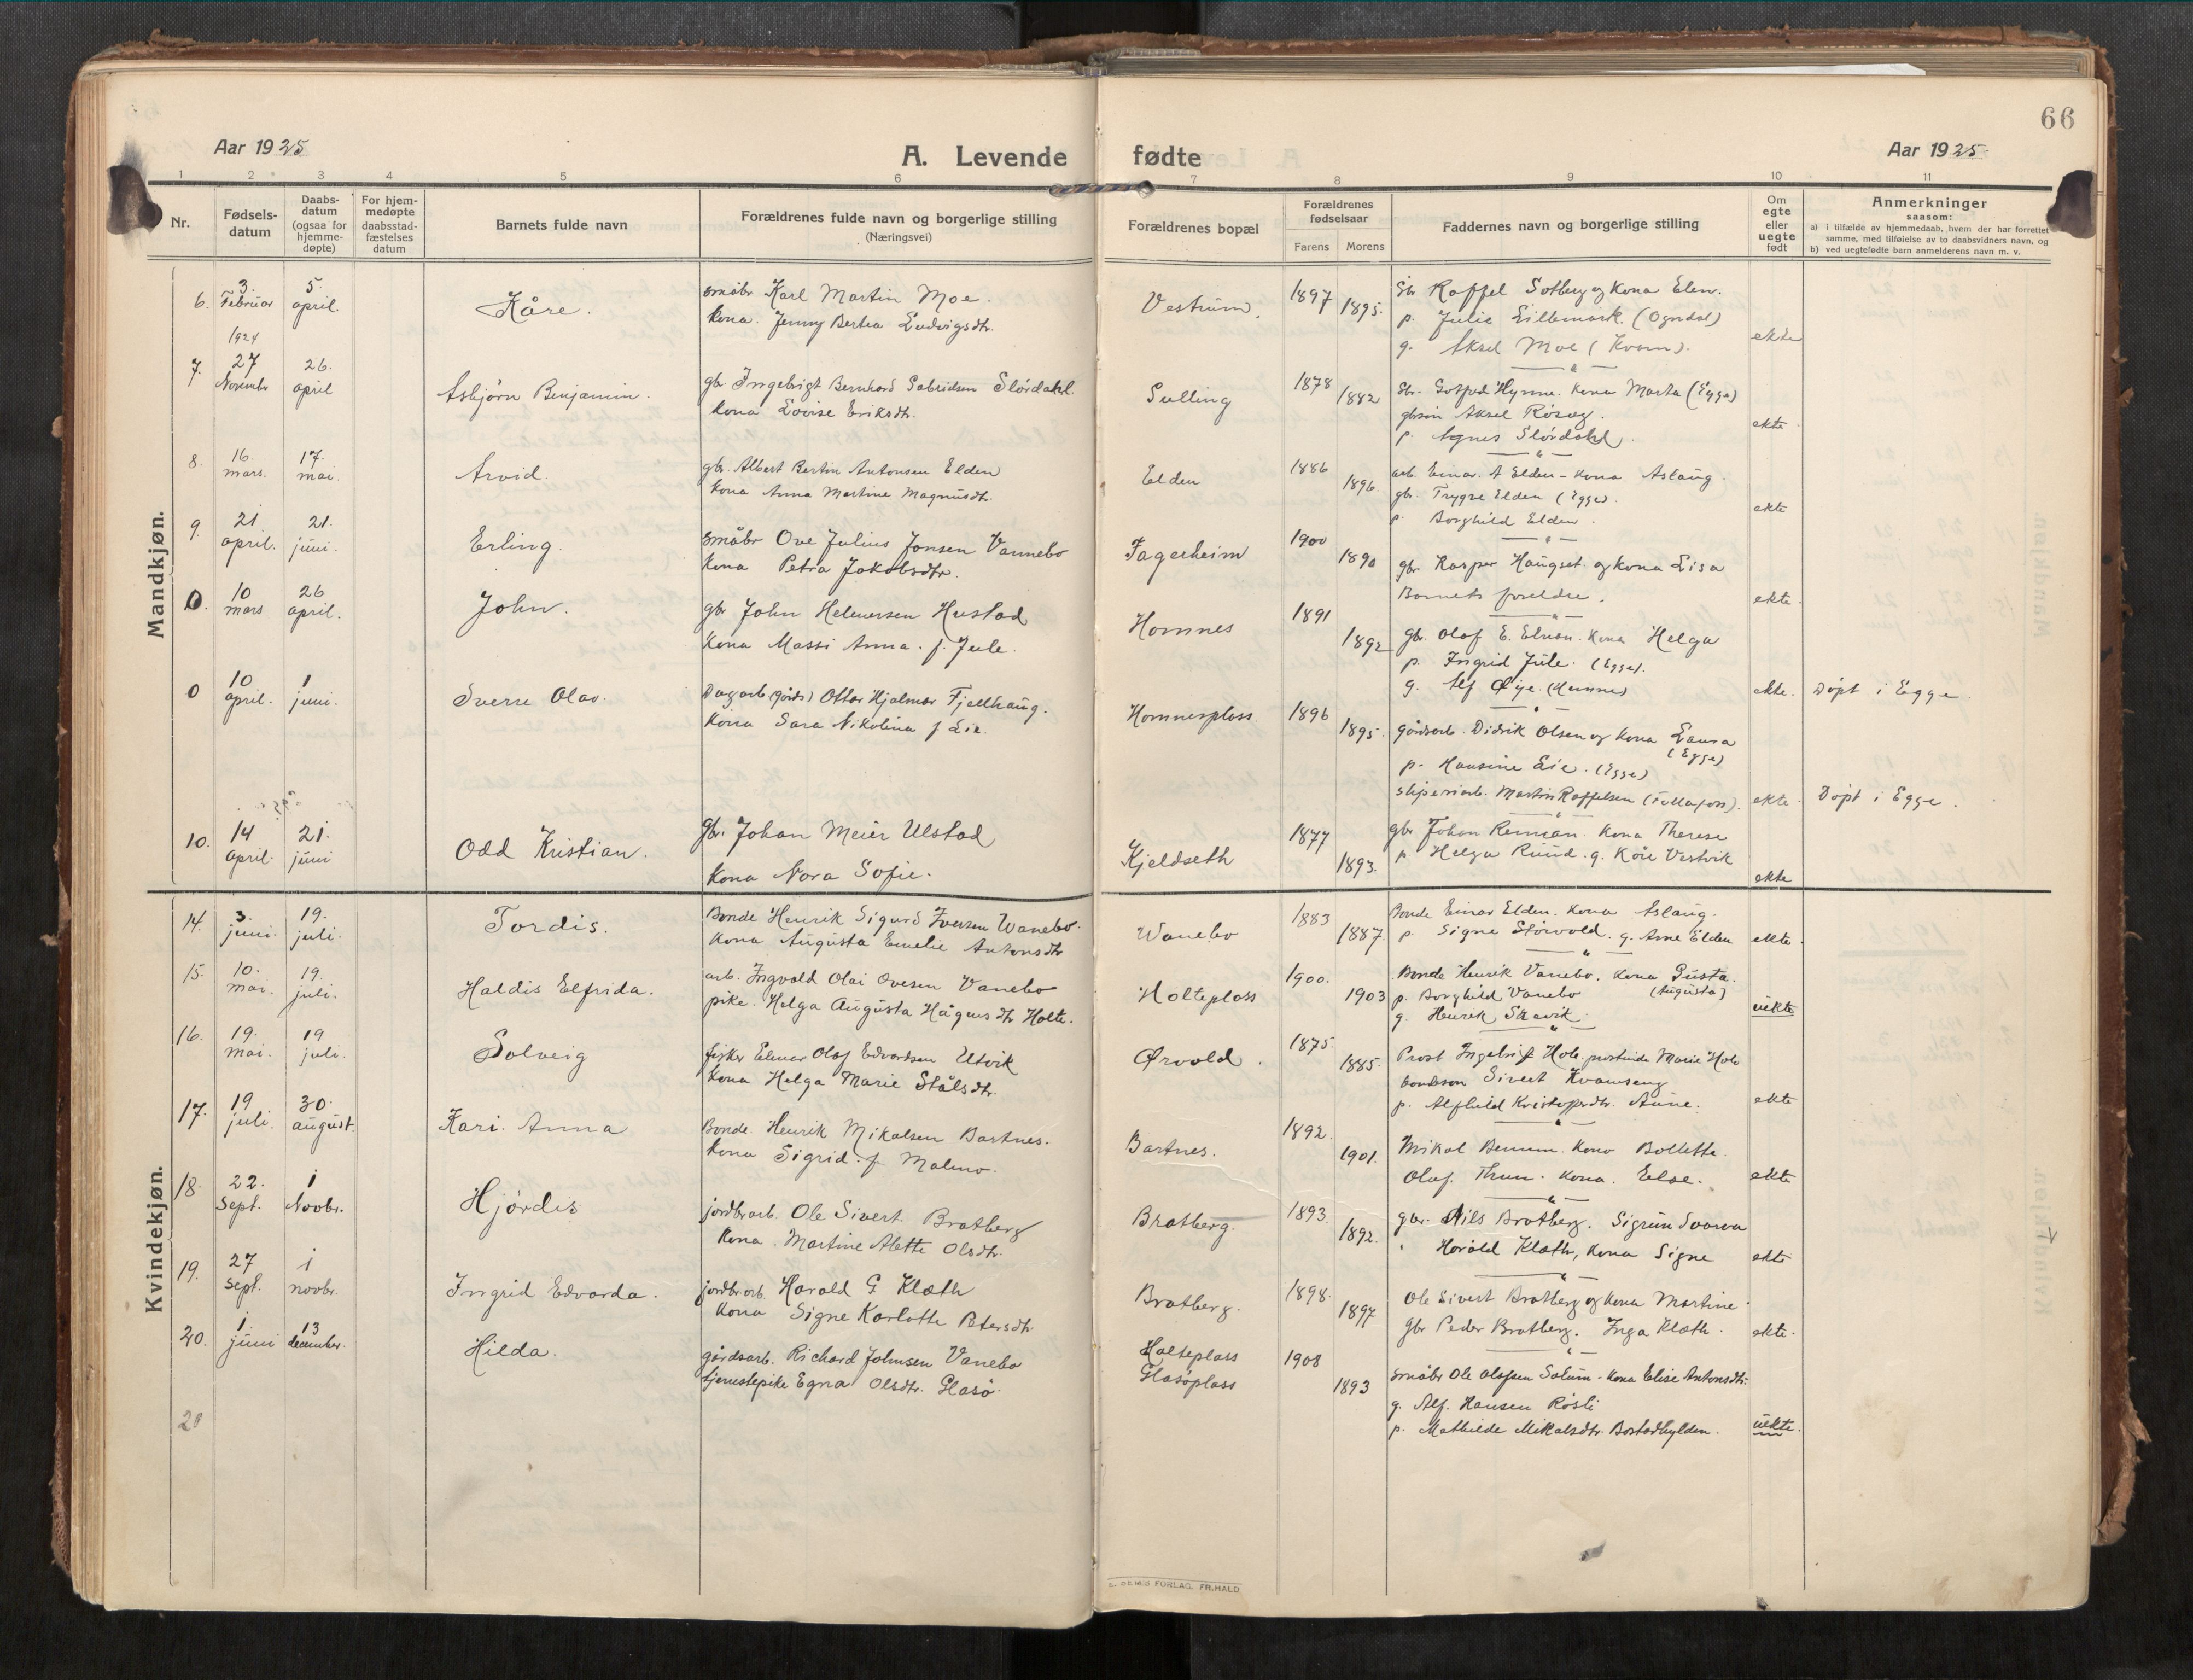 66
Aar 1925
A. Levende fødte
Aar 1925
1 2 3 4 5 6 7 8 9 10 11
Nr.
Fødsels-
datum
Daabs-
datum
(ogsaa for
hjemme-
døpte)
For hjem-
medøpte
daabsstad-
fæstelses
datum
Barnets fulde navn
Forældrenes fulde navn og borgerlige stilling
(Næringsvei)
Forældrenes bopæl
Forældrenes
fødselsaar
Farens Morens
Faddernes navn og borgerlige stilling
Om
egte
eller
uegte
født
Anmerkninger
saasom:
a) i tilfælde av hjemmedaab, hvem der har forrettet
samme, med tilføielse av to daabsvidners navn, og
b) ved uegtefødte barn anmelderens navn m. v.
Mandkjøn.
6. 3. Februar 5. april.
Kåre.
småbr Karl Martin Moe.
kona. Jenny Bertea Ludvigsdtr.
Vestrum.
1897 1895.
Gbr Roffel Sotberg og kona Elen.
p. Julie Lillemark. (Ogndal)
g. Aksel Moe (Kvam).
ekte
1924
7. 27 Novembr 26. april
Asbjørn Benjamin.
gbr Ingebrigt Bernhard Gabrielsen Slørdahl.
kona Lovise Eriksdtr.
Selling
1878 1882
Gbr. Hynne. kona Marta (Egge)
gbrsøn Aksel Rosag.
p. Agnes Slørdahl.
ekte
8. 16. mars. 17. mai.
Arvid.
gbr. Albert Bertin Antonsen Elden
kona Anna Martine Magnusdtr.
Elden
1886 1896.
arb. Einar A Elden - kona Aslaug.
gbr. Trygve Elden (Egge).
p. Borghild Elden.
ekte
9. 21 april. 21. juni.
Erling.
småbr Ove Julius Jonsen Vannebo
kona Petra Jakobsdtr.
Fagerheim
1900 1890
gbr Kasper Haugset og kona Lisa
Barnets foreldre.
ekte.
0. 10 mars 26 april.
John.
gbr John Helmersen Hustad
kona Massi Anna. f. Jule.
Homnes
1891 1892
gbr. Olaf E. Elnan. kona Helga
p. Ingrid Jule. (Egge).
g. Alf Øye. (Hømnes)
ekte. Døpt i Egge.
0 10 april. 1 juni.
Sverre Olav.
Dagarb (gårds) Ottar Hjalmar Fjellhaug.
kona Sara Nikolina f Lie.
Homnesplass
1896 1895.
gårdsarb. Didrik Olsen og kona Laura
(Egge)
p. Hansine Lie. (Egge)
sliperiarb. Martin Roffelsen (Follafoss).
ekte. Døpt i Egge.
10. 14 april. 21. juni
Odd Kristian.
Gbr. Johan Meier Ulstad
kona Nora Sofie.
Kjeldseth
1877 1893.
gbr Johan Remian. kona Therese
p. Helga Ruud. g. Kåre Vestvik
ekte
Kvindekjøn.
14. 3. juni. 19. juli.
Tordis.
Bonde Henrik Sigurd Iversen Wanebo.
kona Augusta Emelie Antonsdtr
Wanebo
1883 1887.
Bonde Einar Elden. kona Aslaug.
p. Signe Størvold. g. Arne Elden
ekte.
15. 10. mai. 19. juli.
Haldis Elfrida.
arb. Ingvald Olai Ovesen Vanebo
pike. Helga Augusta Hågensdtr Holte.
Holteplass
1900. 1903
Bonde Henrik Vanebo. kona Gusta.
(Augusta)
p. Borghild Vanebo
g. Henrik Skavik.
uekte
16. 19. mai. 19 juli.
Solveig
fisker Elmar Olaf Edvardsen Utvik
kona Helga Marie Stålsdtr.
Ørvold.
1875. 1885.
Prost Ingebrigt Hole prostinde Marie Hole
bondesøn Sivert Kvamseng
p. Alfhild Kristoffersdtr. Aune.
ekte
17. 19 juli. 30. august.
Kari. Anna
Bonde. Henrik Mikalsen Bartnes.
kona Sigrid. f Malmo.
Bartnes.
1892. 1901.
Mikal Benum. Kona Bollette.
Olaf. Thrun. kona. Else.
ekte
18. 22. Sept. 1 Novbr.
Hjørdis
jordbrarb. Ole Sivert. Bratberg
kona. Martine Alette Olsdtr.
Bratberg.
1893. 1892.
gbr. Nils Bratberg. Sigrun Svarva
Harald Klæth, kona Signe
ekte
19. 27 Sept. 1 novbr.
Ingrid Edvarda.
jordbrarb. Harald G Klæth
kona Signe Karlotte Petersdtr
Bratberg.
1898. 1897
Ole Sivert Bratberg og kona Martine.
gbr Peder Bratberg. Inga Klæth.
ekte.
20. 1. juni 13 december.
Hilda.
gårdsarb. Richard Johnsen Vanebo
tjenestepike Egna Olsdtr. Glasø.
Holteplass
Glasøplass
1908 1893
småbr Ole Olafsen Solum - kona Elise Antonsdtr.
g. Alf. Hansen Røsli
p. Mathilde Mikalsdtr. Bostadhylden.
uekte.
21
E. SEMS FORLAG, FR.HALD